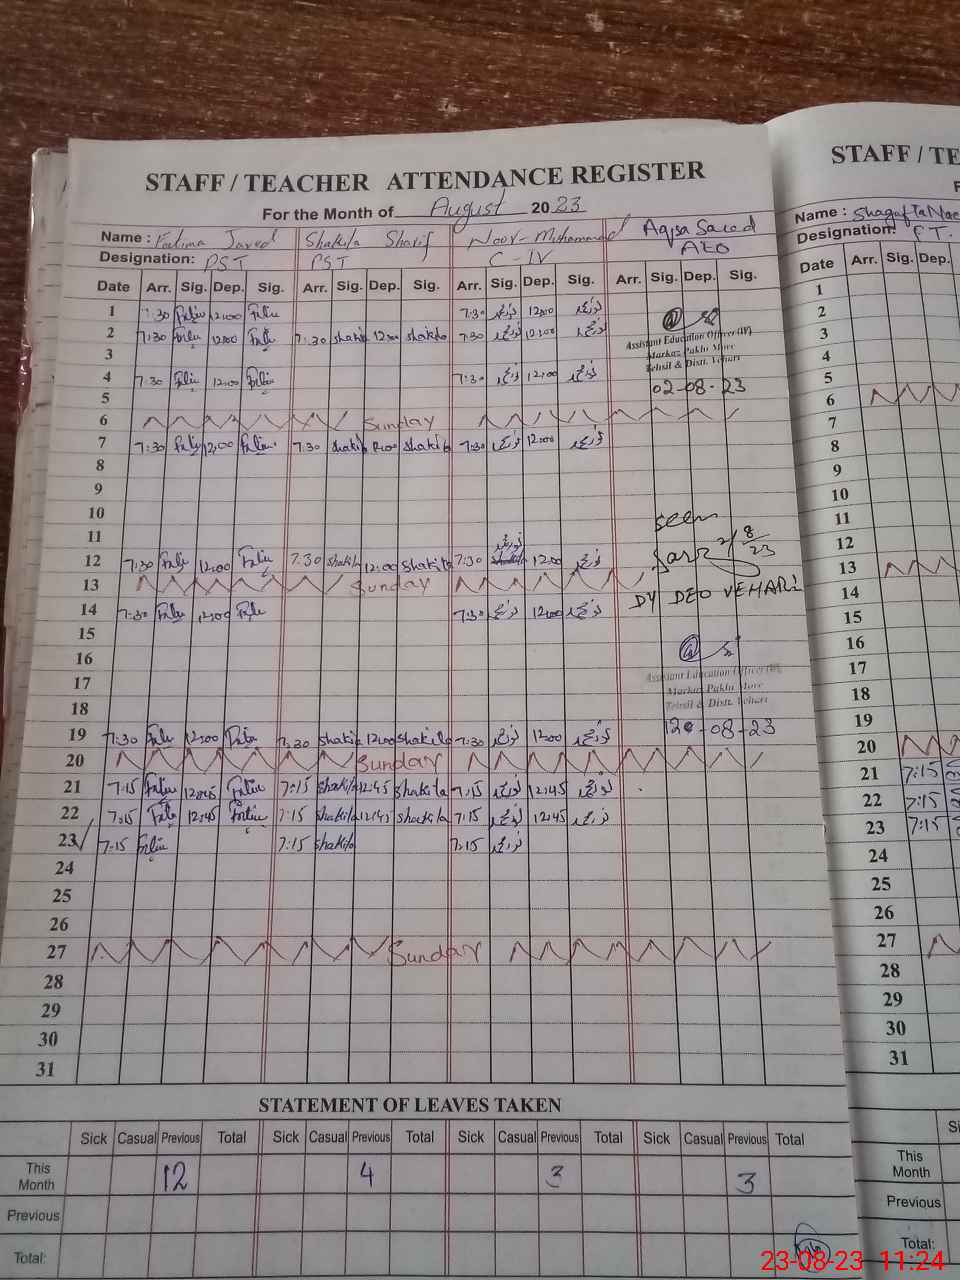 STAFF / TEACHER ATTENDANCE REGISTER
For the Month of August 2023
Name : Fatima Javed Shakila Sharif Noor-Muhammad Aqsa Saeed
Designation: PST PST C-IV AEO
Date Arr. Sig. Dep. Sig. Arr. Sig. Dep. Sig. Arr. Sig. Dep. Sig. Arr. Sig. Dep. Sig.
1 7:30 12:00 7:30 نورمحمد 12:00 نورمحمد
2 7:30 12:00 7:30 shakila 12:00 shakila 7:30 نورمحمد 12:00 نورمحمد
Assistant Education Officer (W)
3
Markaz Pakhi More
Tehsil & Distt. Vehari
4 7:30 12:00 7:30 نورمحمد 12:00 نورمحمد
02-08-23
5
6 Sunday
7 7:30 12:00 7:30 shakila 12:00 shakila 7:30 نورمحمد 12:00 نورمحمد
8
9
10
11 seen
12 7:30 12:00 7:30 shakila 12:00 shakila 7:30 نورمحمد 12:00 نورمحمد
13 Sunday
DY DEO VEHARI
14 7:30 12:00 7:30 نورمحمد 12:00 نورمحمد
15
16
17 Assistant Education Officer (W)
Markaz Pakhi More
18 Tehsil & Distt. Vehari
19 7:30 12:00 7:30 shakila 12:00 shakila 7:30 نورمحمد 12:00 نورمحمد 12-08-23
20 Sunday
21 7:15 12:45 7:15 shakila 12:45 shakila 7:15 نورمحمد 12:45 نورمحمد
22 7:15 12:45 7:15 shakila 12:45 shakila 7:15 نورمحمد 12:45 نورمحمد
23 7:15 7:15 shakila 7:15 نورمحمد
24
25
26
27 Sunday
28
29
30
31
STATEMENT OF LEAVES TAKEN
Sick Casual Previous Total Sick Casual Previous Total Sick Casual Previous Total Sick Casual Previous Total
This Month 12 4 3 3
Previous
Total:
STAFF / TE
F
Name : Shagufta Nae
Designation: PT.
Date Arr. Sig. Dep.
1
2
3
4
5
6
7
8
9
10
11
12
13
14
15
16
17
18
19
20
21 7:15
22 7:15
23 7:15
24
25
26
27
28
29
30
31
Si
This Month
Previous
Total:
23-08-23 11:24